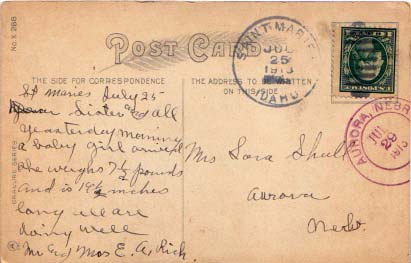 No. X 288
POST CARD
THE SIDE FOR CORRESPONDENCE
THE ADDRESS TO BE WRITTEN
ON THIS SIDE
SAINT MARIES
JUL
25
1913
IDAHO
AURORA, NEBR.
JUL
29
1913
St Maries July 25
Dear Sister and all
yeasterday morning
a baby girl arrived
she weighs 7 1/2 pounds
and is 19 1/2 inches
long all are
doing well
Mr and Mrs E. A. Rich
Mrs Sara Shull
Aurora
Nebr